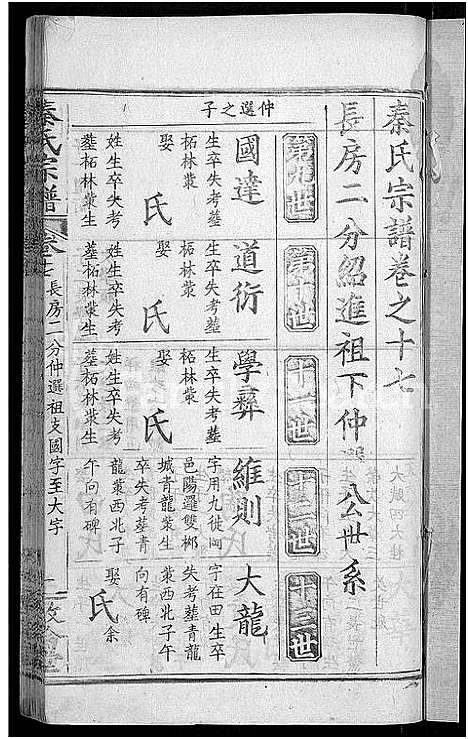 秦氏宗譜卷之十七
長房二分紹進祖下仲選公世系
第九世
第十世
十一世
十二世
十三世
仲選之子
國達
生卒失考塟
柘林葉
娶
氏
姓生卒失考
塟柘林葉生
道衍
生卒失考塟
柘林葉
娶
氏
姓生卒失考
塟柘林葉生
學彞
生卒失考塟
柘林葉
娶
氏
姓生卒失考
塟柘林葉生
維則
字用九徙
邑陽邏雙
城青龍葉生
卒失考塟青
龍葉西北子
午向有碑
大龍
字在田生卒
失考塟青龍
葉西北子午
向有碑
娶余
氏
秦氏宗譜
卷十七
長房二分仲選祖支國字至大字
一